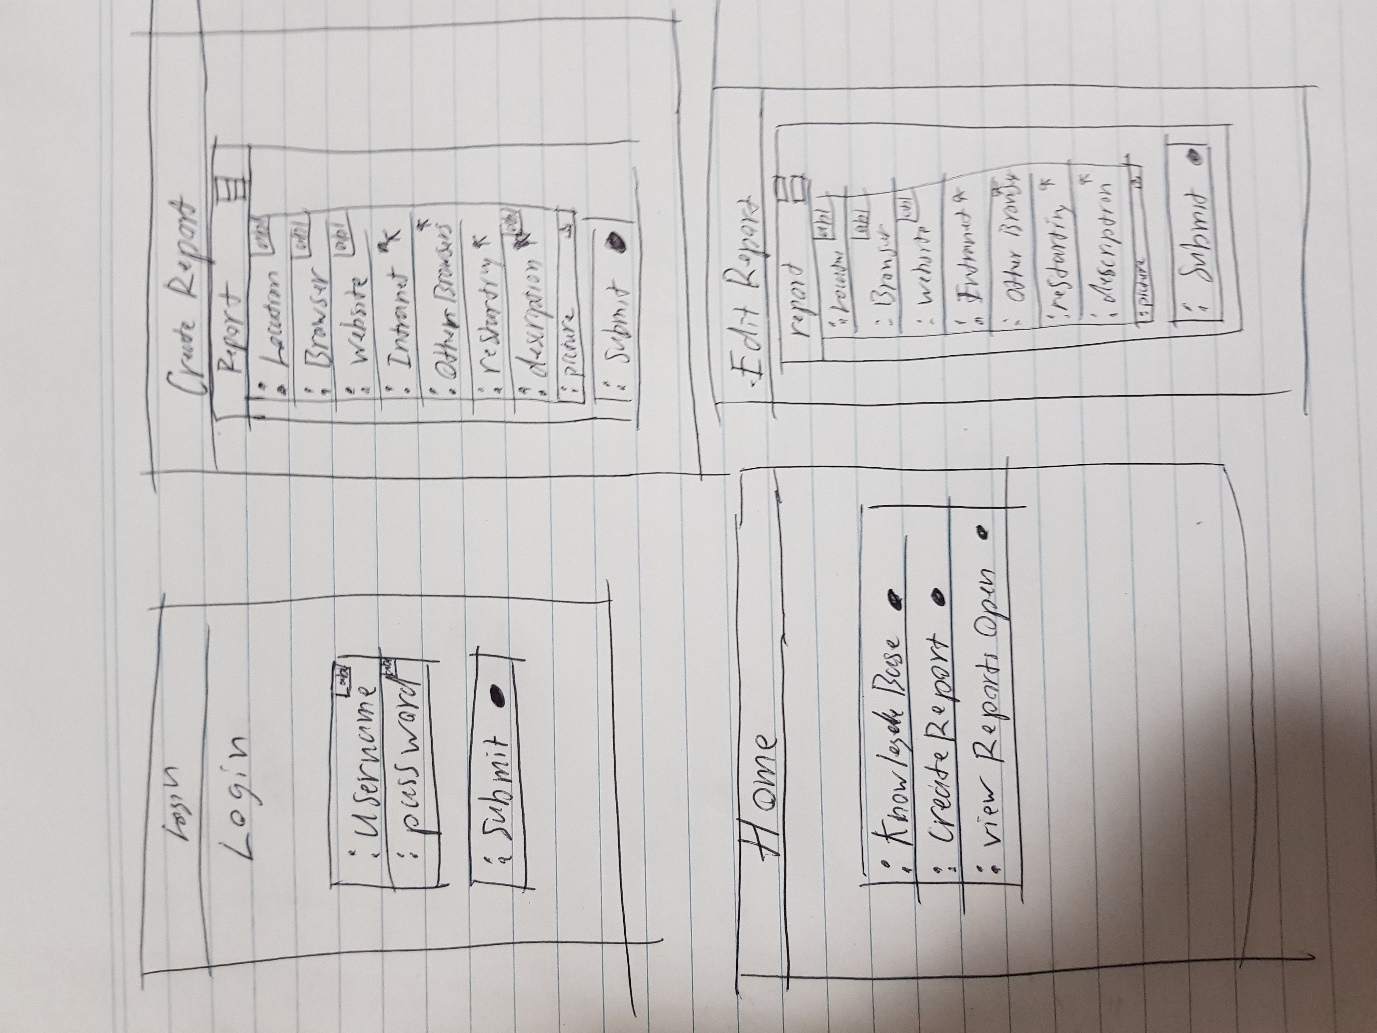 Login
Login
: Username
Label
: password
: Submit
Create Report
Report
: Location
Label
: Browser
Label
: website
Label
: Intranet *
: Other Browsers *
: restarting *
: description *
Label
: picture
: Submit
Home
: Knowlegde Base
: Create Report
: view Reports Open
Edit Report
report
: Location
Label
: Browser
Label
: website
Lbl
: Intranet *
: Other Browser *
: restarting *
: description *
: picture
: Submit